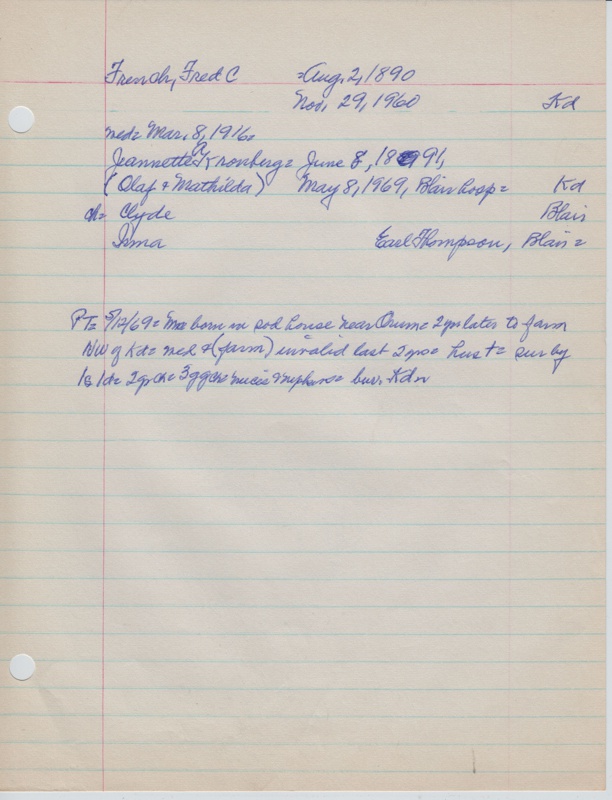 French, Fred C = Aug. 2, 1890
Nov. 29, 1960 Kd
med = Mar. 8, 1916 =
Jeannette A Kronberg = June 8, 1891,
(Olaf + Mathilda) May 8, 1969, Blair hosp = Kd
ch = Clyde Blair
Irma Earl Thompson, Blair =
PT = 5/12/69 = born in sod house near Orum = 2 yrs later to farm
NW of Kd = med + (farm) invalid last 2 yrs = hus + = sur by
1s 1d = 2 grch = 3 ggch = nieces + nephews = bur. Kd